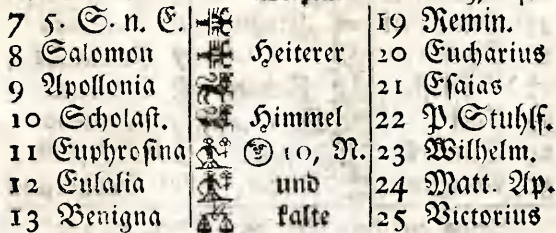 7 5. S. n. E. 19 Remin.
8 Salomon Heiterer 20 Eucharius
9 Apollonia 21 Esaias
10 Scholaſt. Himmel 22 P. Stuhlf.
11 Euphroſina 10, N. 23 Wilhelm.
12 Eulalia und 24 Matt. Ap.
13 Benigna kalte 25 Victorius